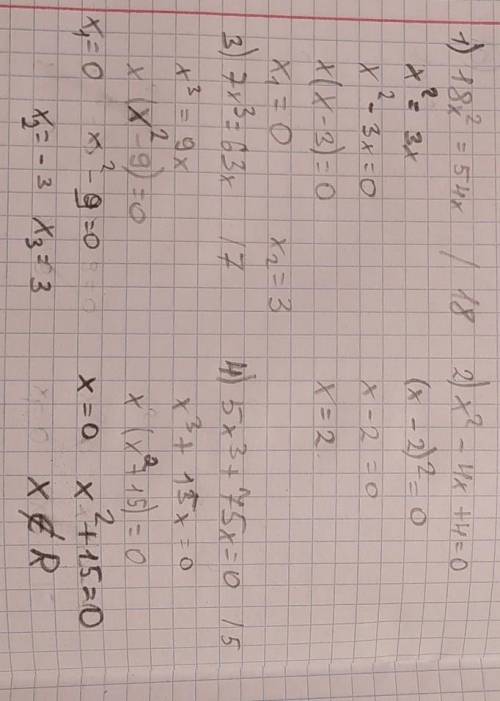 1) 18x² = 54x / 18
x² = 3x
x² - 3x = 0
x(x-3) = 0
x₁ = 0 x₂ = 3
2) x² - 4x + 4 = 0
(x-2)² = 0
x - 2 = 0
x = 2
3) 7x³ = 63x / 7
x³ = 9x
x (x² - 9) = 0
x₁ = 0 x² - 9 = 0
x₂ = -3 x₃ = 3
4) 5x³ + 75x = 0 / 5
x³ + 15x = 0
x (x² + 15) = 0
x = 0 x² + 15 = 0
x ∉ R